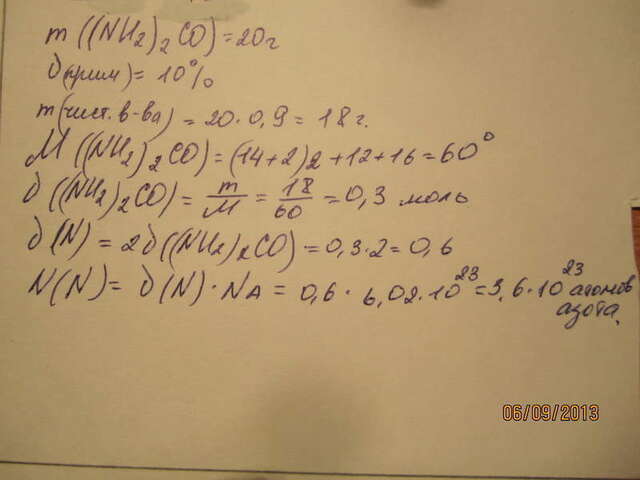 m ((NH2)2CO) = 20г
∂(прим) = 10%
m(чист. в-ва) = 20·0,9 = 18г.
M ((NH2)2CO) = (14+2)2+12+16=60°
∂ ((NH2)2CO) = m/M = 18/60 = 0,3 моль
∂(N) = 2∂((NH2)2CO) = 0,3·2 = 0,6
N(N) = ∂(N)·NA = 0,6·6,02·10^23 = 3,6·10^23 атомов
азота.
06/09/2013